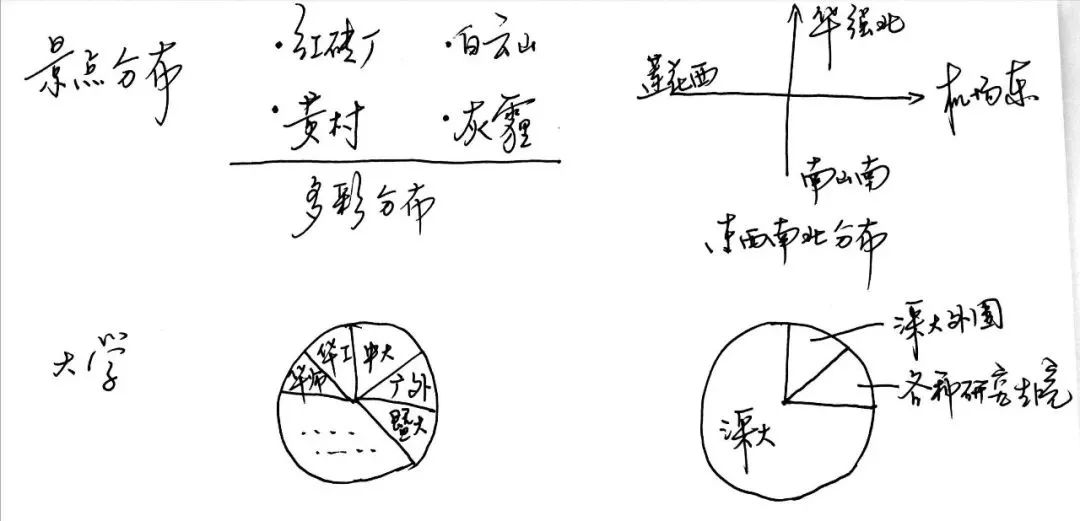 景点分布
·红砖厂
·白云山
·黄村
·灰霾
多彩分布
华强北
莲花西
机场东
南山南
东西南北分布
大学
华师
华工
中大
广外
暨大
……
……
深大外围
各种研究生院
深大